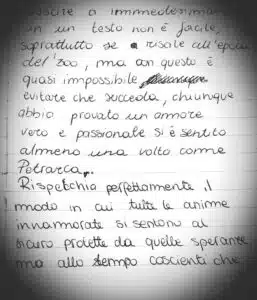 riuscire a immedesimarsi
in un testo non è facile,
soprattutto se risale all'epoca
del '300, ma con questo è
quasi impossibile
evitare che succeda, chiunque
abbia provato un amore
vero e passionale si è sentito
almeno una volta come
Petrarca.
Rispetchia perfettamente il
modo in cui tutte le anime
innamorate si sentono al
sicuro protette da quelle speranze
ma allo stempo coscienti che